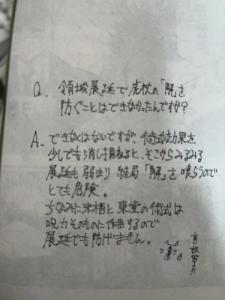 Q. 領域展延で虎杖の「解」を
防ぐことはできなかったんですか?
A. できなくはないですが、術式効果を
少しでも消し損ねると、そこからみるみる
展延も弱まり結局「解」を喰らうので
とても危険。
ちなみに釘崎と東堂の術式は
呪力そのものに作用するので
展延でも防げません。